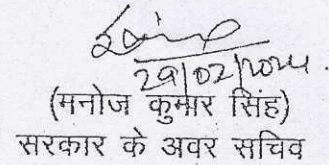 29/02/2024.
(मनोज कुमार सिंह)
सरकार के अवर सचिव